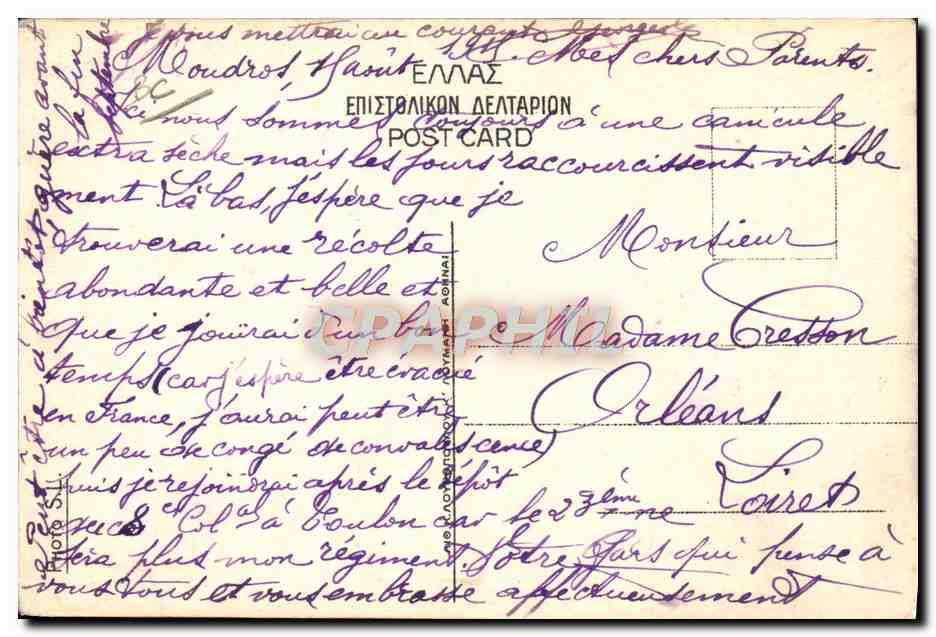 Je vous mettrai au courant
Moudros 1 Août 1915. Mes chers Parents.
ΕΛΛΑΣ
ΕΠΙΣΤΟΛΙΚΟΝ ΔΕΛΤΑΡΙΟΝ
POST CARD
Ici nous sommes toujours à une canicule
extra sèche mais les jours raccourcissent visible
ment. Là bas, j'espère que je
trouverai une récolte
abondante et belle et
que je jouirai d'un bon
temps (car j'espère être évacué
en France, j'aurai peut être
un peu de congé de convalescence)
puis je rejoindrai après le dépôt
du 8e Cal à Toulon car le 23ème ne
sera plus mon régiment. Votre Gars qui pense à
vous tous et vous embrasse affectueusement
Monsieur
Madame Cresson
Orléans
Loiret
Peut être à Vincent, guère avant
la fin
septembre
PHOTO S.I.
CPAPHIL